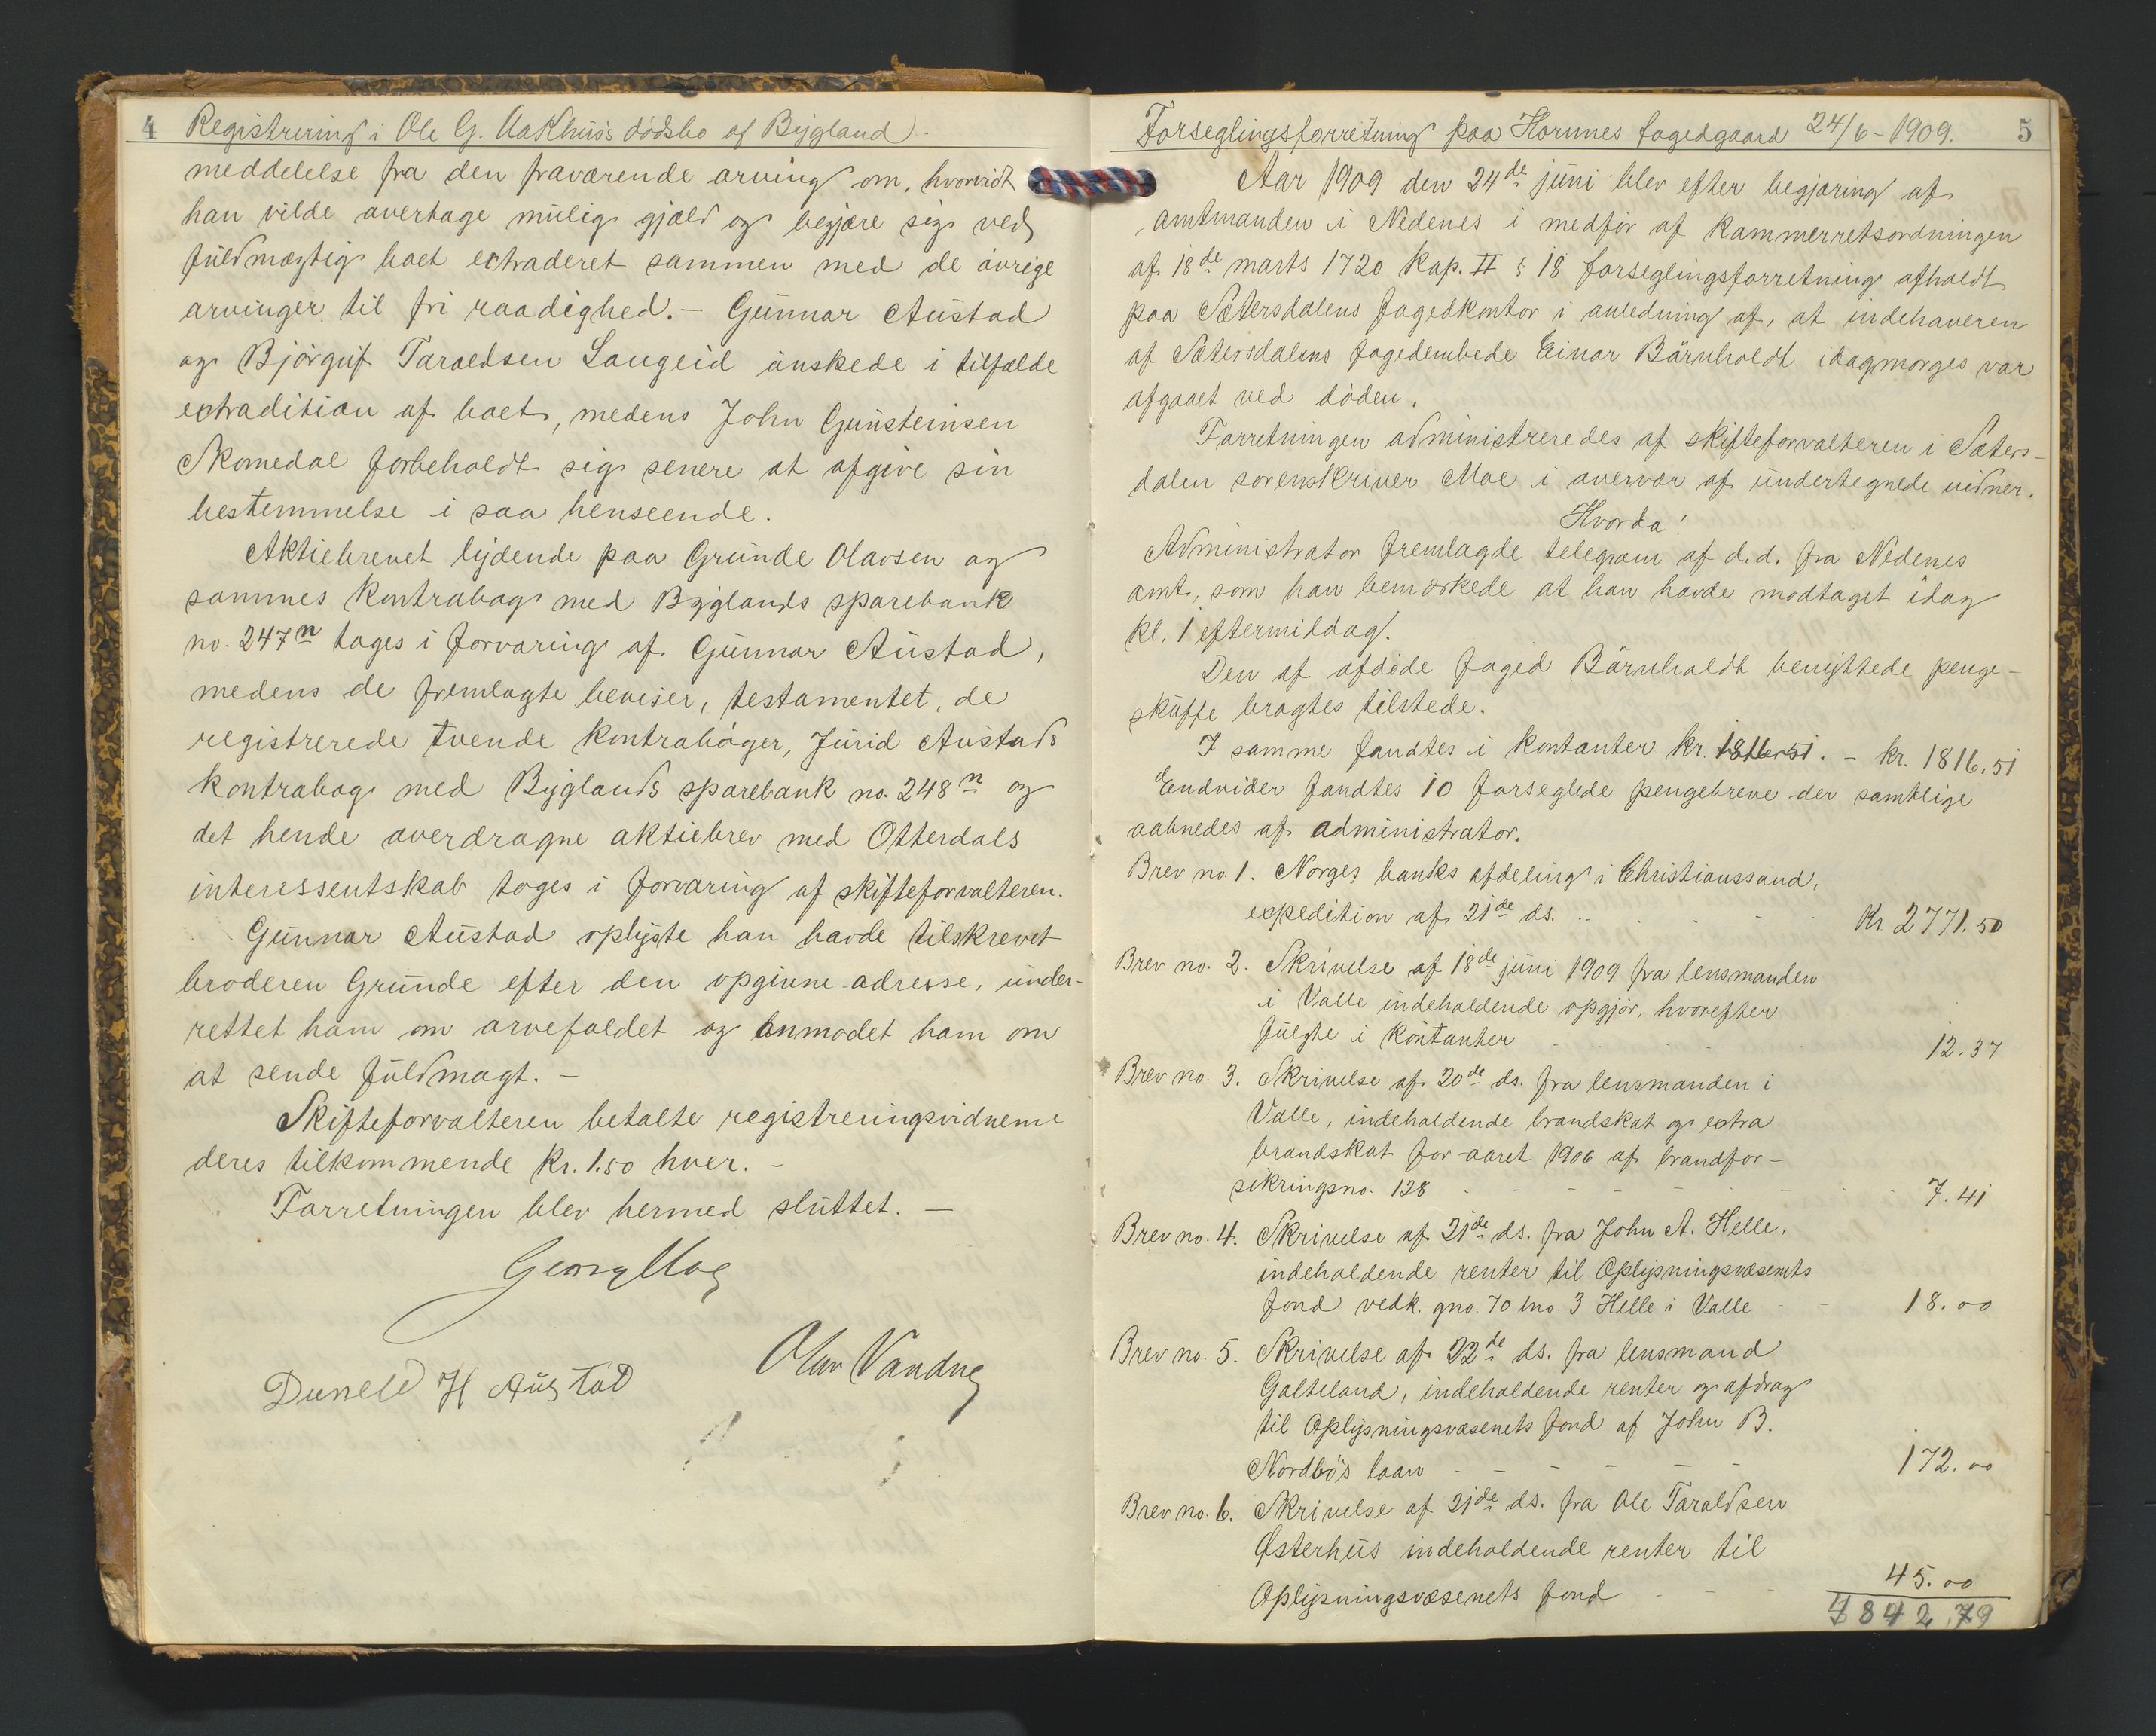 4 Registrering i Ole G. Aakhus's dödsbo af Bygland.
meddelelse fra den fraværende arving om, hvorvidt
han vilde overtage mulig gjæld og begjære sig ved
fuldmægtig boet extraderet sammen med de övrige
arvinger til fri raadighed. - Gunnar Austad
og Björguf Taraldsen Langeid önskede i tilfælde
extradition af boet, medens John Gunsteinsen
Skomedal forbeholdt sig senere at afgive sin
bestemmelse i saa henseende.
Aktiebrevet lydende paa Grunde Olavsen og
sammes kontrabog med Byglands sparebank
no. 247n toges i forvaring af Gunnar Austad,
medens de fremlagte beviser, testamentet, de
registrerede tvende kontraböger, Jurid Austads
kontrabog med Byglands sparebank no. 248n og
det hende overdragne aktiebrev med Otterdals
interessentskab toges i forvaring af skifteforvalteren.
Gunnar Austad oplyste han havde tilskrevet
broderen Grunde efter den opgivne adresse, under-
rettet ham om arvefaldet og anmodet ham om
at sende fuldmagt. -
Skifteforvalteren betalte registreringsvidnerne
deres tilkommende kr. 1.50 hver. -
Forretningen blev hermed sluttet. -
Georg Moe
Olav Vandne
H Austad
Forseglingsforretning paa Hornnes fogedgaard 24/6 - 1909. 5
Aar 1909 den 24de juni blev efter begjæring af
amtmanden i Nedenes i medför af kammerretsordningen
af 18de marts 1720 kap. II § 18 forseglingsforretning afholdt
paa Sætersdalens fogedkontor i anledning af, at indehaveren
af Sætersdalens fogedembede Einar Bärnholdt idagmorges var
afgaaet ved döden.
Forretningen administreredes af skifteforvalteren i Sæters-
dalen sorenskriver Moe i overvær af undertegnede vidner.
Hvorda!
Administrator fremlagde telegram af d.d. fra Nedenes
amt, som han bemærkede at han havde modtaget idag
kl. 1 eftermiddag.
Den af afdöde foged Bärnholdt benyttede penge-
skuffe bragtes tilstede.
I samme fandtes i kontanter kr. 1816.51. - kr. 1816.51
Endvider fandtes 10 forseglede pengebreve der samtlige
aabnedes af administrator.
Brev no. 1. Norges banks afdeling i Christianssand,
expedition af 21de ds. - Kr 2771.50
Brev no. 2. Skrivelse af 18de juni 1909 fra lensmanden
i Valle indeholdende opgjör, hvorefter
fulgte i kontanter 12.37
Brev no. 3. Skrivelse af 20de ds. fra lensmanden i
Valle, indeholdende brandskat og extra
brandskat for aaret 1906 af brandfor-
sikringsno. 128 7.41
Brev no. 4. Skrivelse af 21de ds. fra John A. Helle,
indeholdende renter til Oplysningsvæsenets
fond vedk. gno. 70 bno. 3 Helle i Valle 18.00
Brev no. 5. Skrivelse af 22de ds. fra lensmand
Galteland, indeholdende renter og afdrag
til Oplysningsvæsenets fond af John B.
Nordbö's laan 172.00
Brev no. 6. Skrivelse af 21de ds. fra Ole Taraldsen
Østerhus indeholdende renter til
Oplysningsvæsenets fond 45.00
4842,79